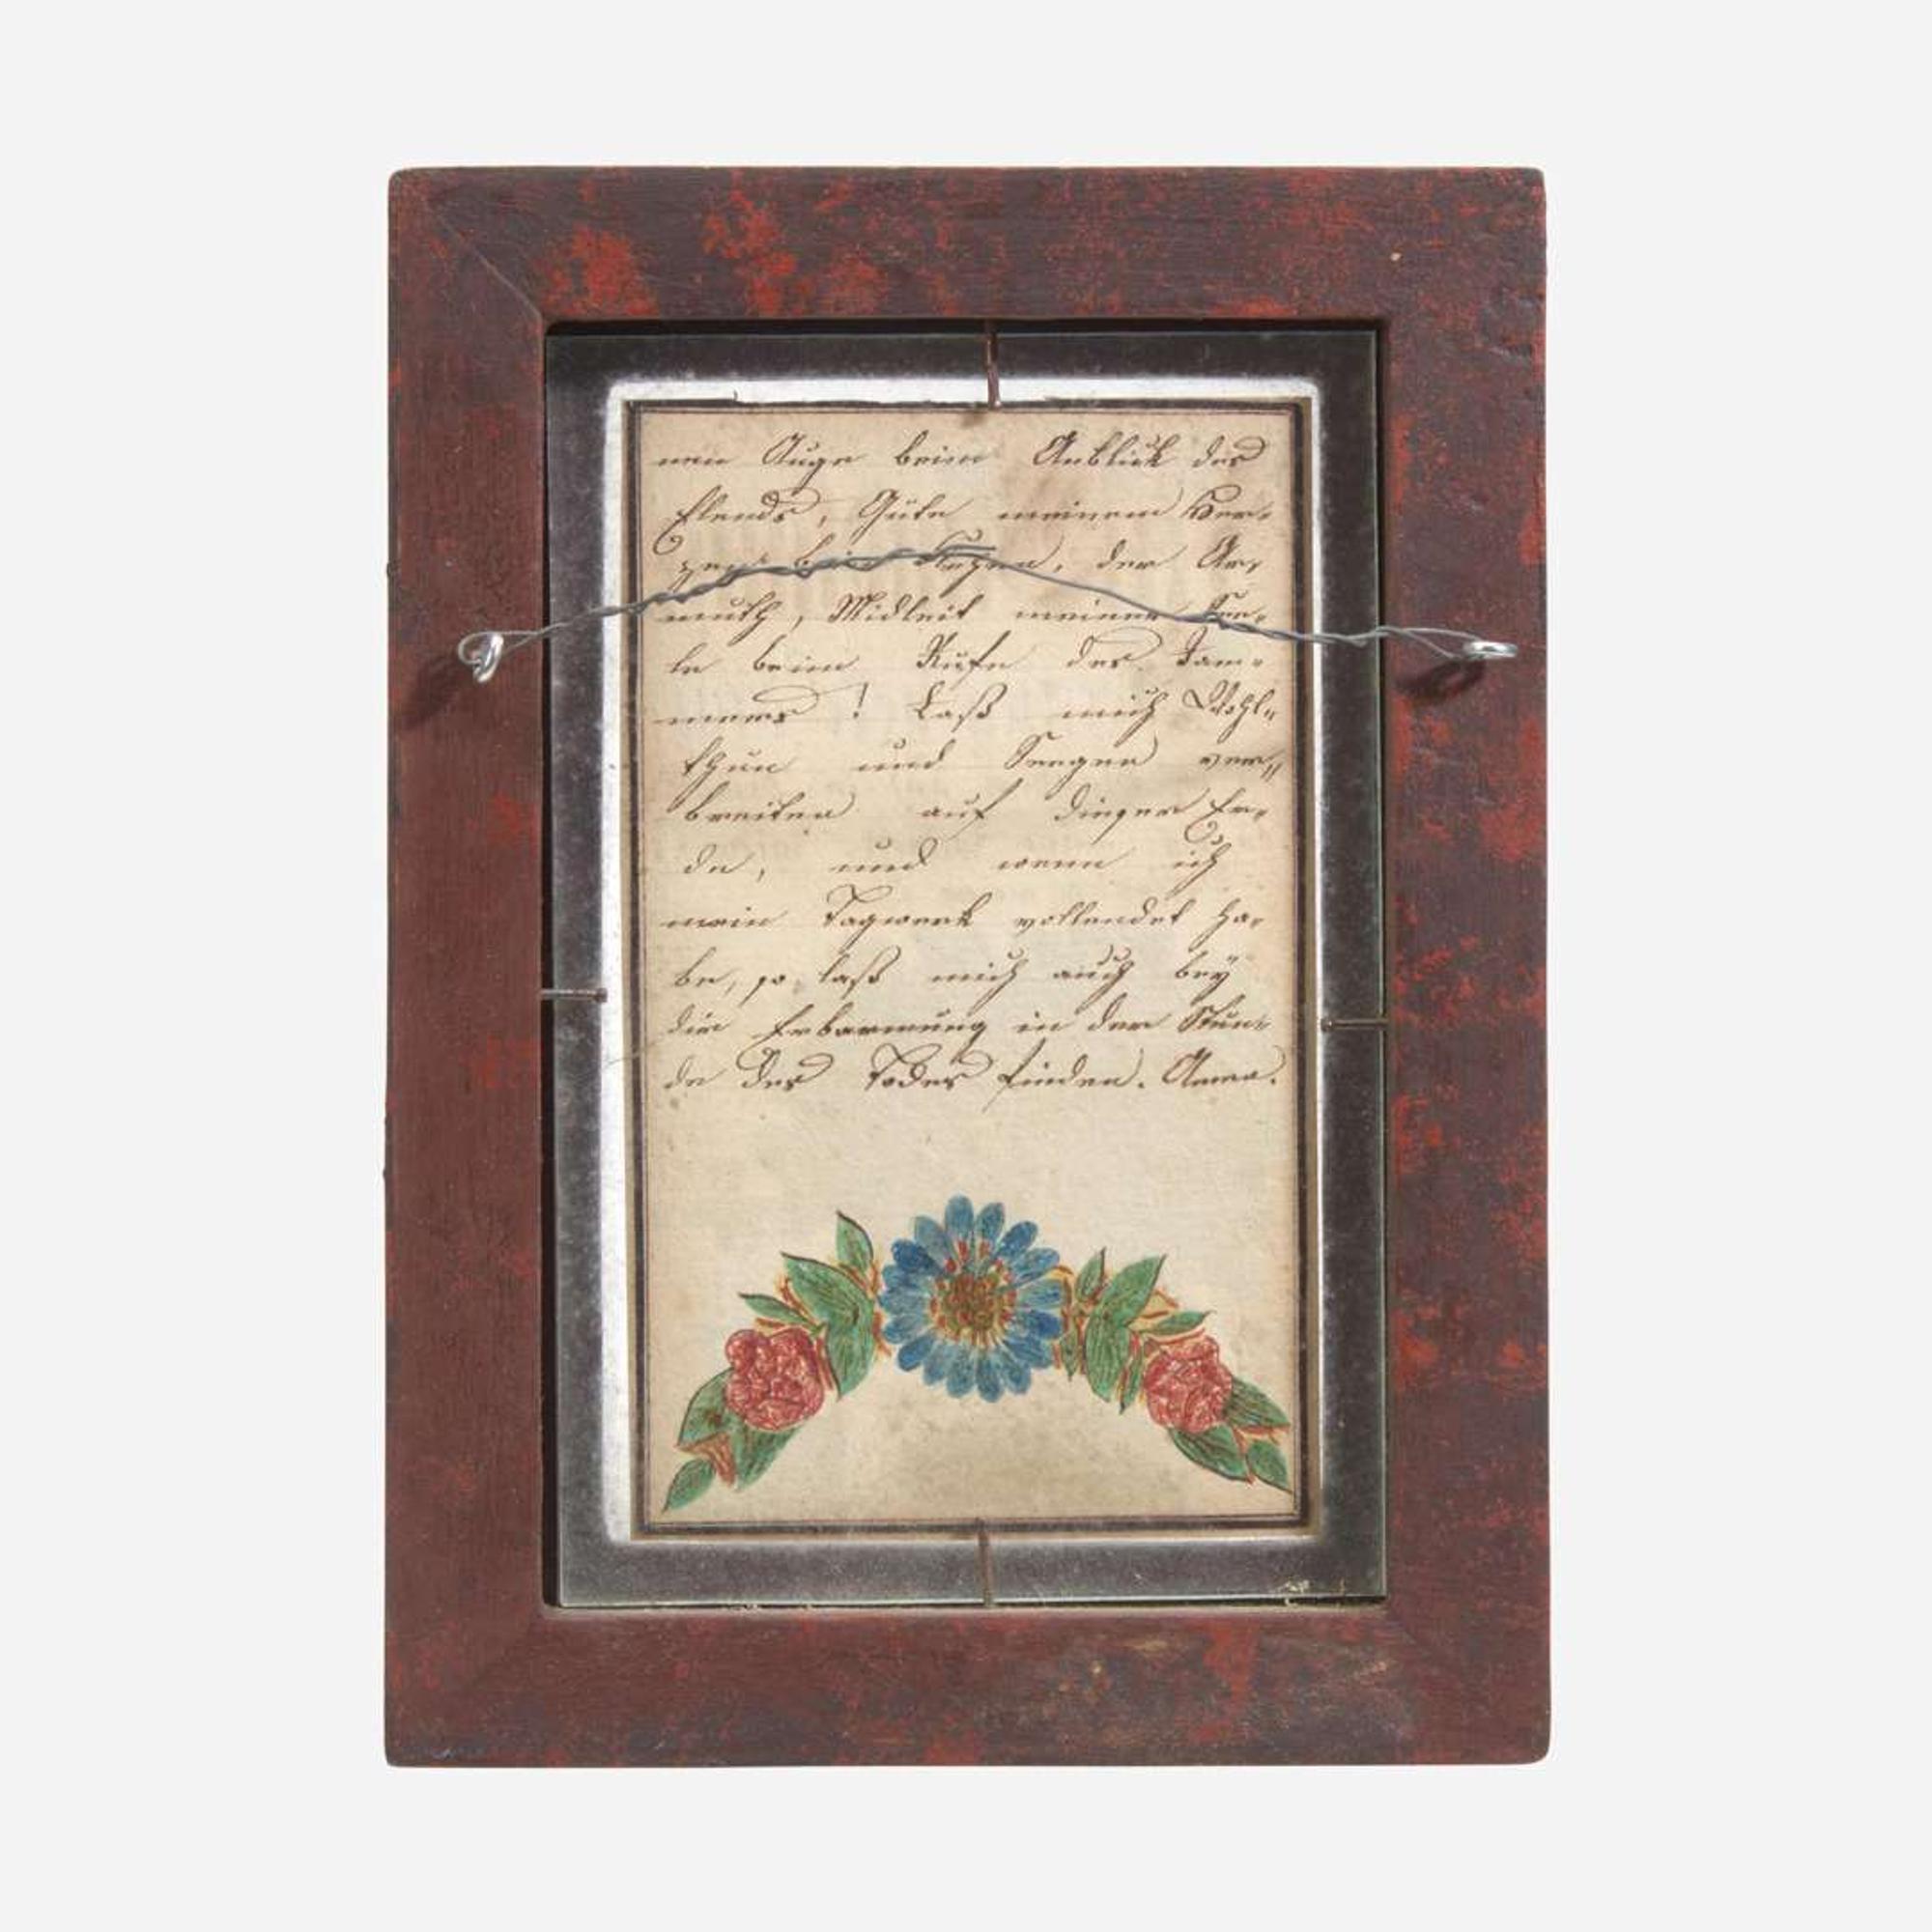 nem Auge beim Anblick des
Elends, Güte meinem Her-
zen beim Flehen, der Ar-
muth, Midleit meiner See-
le beim Rufe des Jam-
mers! Laß mich Wohl-
thun und Seegen ver-
breiten auf dieser Er-
de, und wenn ich
mein Tagwerk vollendet ha-
be, so laß mich auch bey
dir Erbarmung in der Stun-
de des Todes finden. Amen.